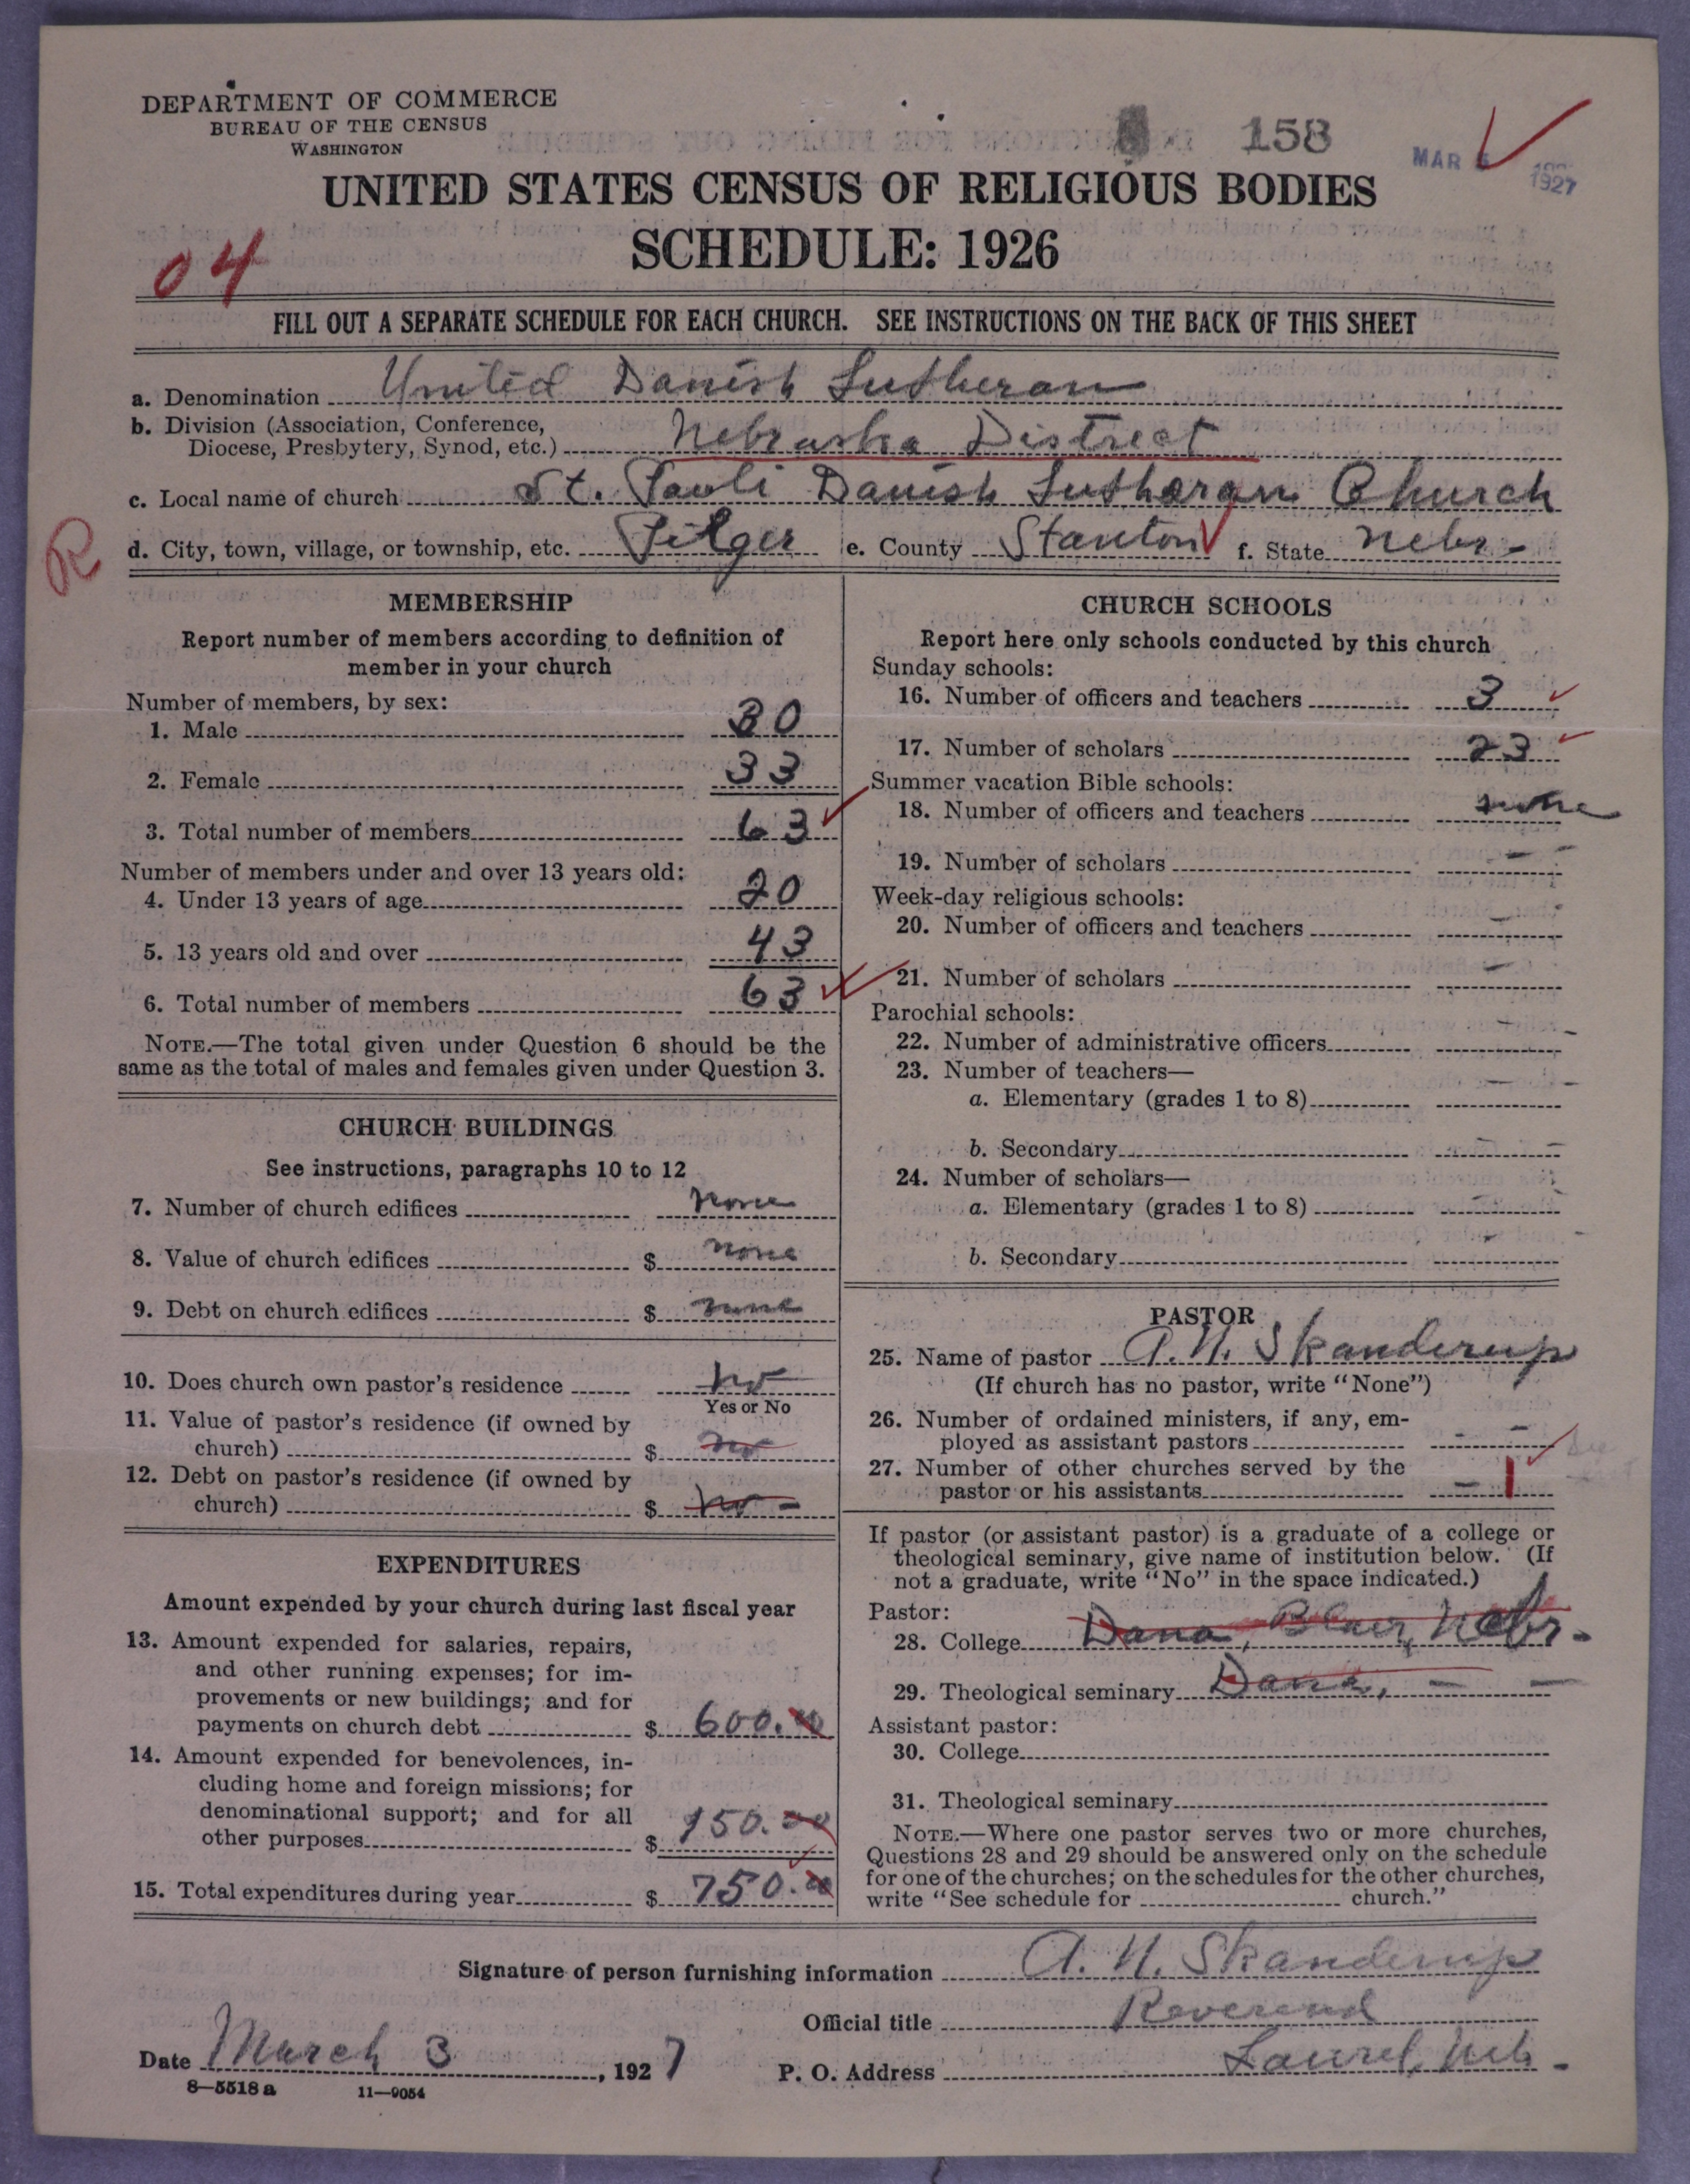 DEPARTMENT OF COMMERCE
BUREAU OF THE CENSUS
WASHINGTON
158
MAR
1927
UNITED STATES CENSUS OF RELIGIOUS BODIES
SCHEDULE: 1926
04
FILL OUT A SEPARATE SCHEDULE FOR EACH CHURCH. SEE INSTRUCTIONS ON THE BACK OF THIS SHEET
a. Denomination United Danish Lutheran
b. Division (Association, Conference,
Diocese, Presbytery, Synod, etc.) Nebraska District
c. Local name of church St. Pauli Danish Lutheran Church
R
d. City, town, village, or township, etc. Pilger e. County Stanton f. State Nebr-
MEMBERSHIP
Report number of members according to definition of
member in your church
Number of members, by sex:
1. Male 30
2. Female 33
3. Total number of members 63
Number of members under and over 13 years old:
4. Under 13 years of age 20
5. 13 years old and over 43
6. Total number of members 63
NOTE.—The total given under Question 6 should be the
same as the total of males and females given under Question 3.
CHURCH BUILDINGS
See instructions, paragraphs 10 to 12
7. Number of church edifices none
8. Value of church edifices $ none
9. Debt on church edifices $ none
10. Does church own pastor's residence no
Yes or No
11. Value of pastor's residence (if owned by
church) $ no
12. Debt on pastor's residence (if owned by
church) $ no -
EXPENDITURES
Amount expended by your church during last fiscal year
13. Amount expended for salaries, repairs,
and other running expenses; for im-
provements or new buildings; and for
payments on church debt $ 600.00
14. Amount expended for benevolences, in-
cluding home and foreign missions; for
denominational support; and for all
other purposes $ 150.00
15. Total expenditures during year $ 750.00
CHURCH SCHOOLS
Report here only schools conducted by this church
Sunday schools:
16. Number of officers and teachers 3
17. Number of scholars 23
Summer vacation Bible schools:
18. Number of officers and teachers none
19. Number of scholars - -
Week-day religious schools:
20. Number of officers and teachers - -
21. Number of scholars - -
Parochial schools:
22. Number of administrative officers - -
23. Number of teachers—
a. Elementary (grades 1 to 8) - -
b. Secondary - -
24. Number of scholars—
a. Elementary (grades 1 to 8) - -
b. Secondary - -
PASTOR
25. Name of pastor A. N. Skanderup
(If church has no pastor, write "None")
26. Number of ordained ministers, if any, em-
ployed as assistant pastors - -
27. Number of other churches served by the
pastor or his assistants - 1
If pastor (or assistant pastor) is a graduate of a college or
theological seminary, give name of institution below. (If
not a graduate, write "No" in the space indicated.)
Pastor:
28. College Dana, Blair, Nebr.
29. Theological seminary Dana, - -
Assistant pastor:
30. College
31. Theological seminary
NOTE.—Where one pastor serves two or more churches,
Questions 28 and 29 should be answered only on the schedule
for one of the churches; on the schedules for the other churches,
write "See schedule for church."
Signature of person furnishing information A. N. Skanderup
Official title Reverend
Date March 3, 1927 P. O. Address Laurel, Neb.
8—5518 a 11—9054